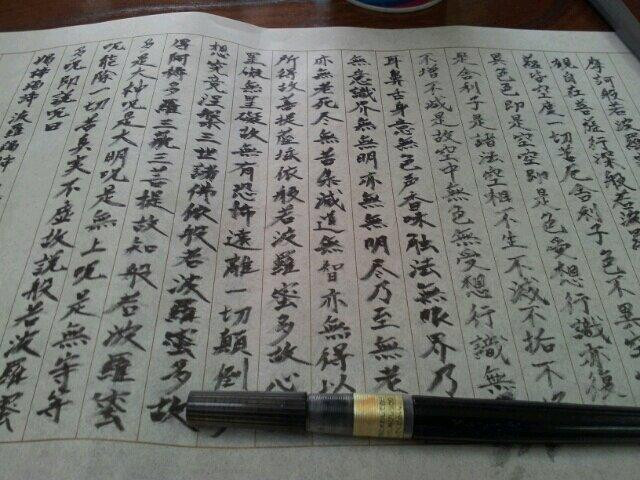 摩訶般若波羅
観自在菩薩行深般若波羅
蘊皆空度一切苦厄舍利子色不異空
異色色即是空空即是色受想行識亦復
是舍利子是諸法空相不生不滅不垢不
不増不減是故空中無色無受想行識無
耳鼻舌身意無色声香味触法無眼界乃
無意識界無無明亦無無明尽乃至無老
亦無老死尽無苦集滅道無智亦無得以
所得故菩提薩埵依般若波羅蜜多故心
罣礙無罣礙故無有恐怖遠離一切顛倒
想究竟涅槃三世諸佛依般若波羅蜜多故
得阿耨多羅三藐三菩提故知般若波羅蜜
多是大神呪是大明呪是無上呪是無等等
呪能除一切苦真実不虚故説般若波羅蜜
多呪即説呪曰
揭諦揭諦 波羅揭諦